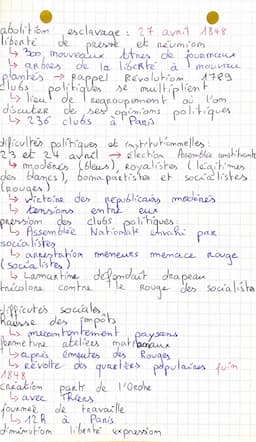 abolition esclavage : 27 avril 1848
liberté de presse et réunions
↳ 300 nouveaux titres de journaux
↳ arbres de la liberté à nouveau
plantés → rappel Révolution 1789
clubs politiques se multiplient
↳ lieu de regroupement où l'on
discuter de ses opinions politiques
↳ 236 clubs à Paris
dificultés politiques et institutionnelles :
23 et 24 avril → élection Assemblée constituante
↳ modérés (bleus), royalistes (légitimes
des blancs), bonapartistes et socialistes
(rouges)
↳ victoire des républicains modérés
↳ tensions entre eux
pression des clubs politiques
↳ Assemblée Nationale envahi par
socialistes
↳ arrestation meneurs menace rouge
(socialistes)
↳ Lamartine défendait drapeau
tricolore contre le rouge des socialistes
difficultés sociales
hausse des impôts
↳ mécontentement paysans
fermeture ateliers nationaux
↳ après émeutes des Rouges
↳ révolte des quartiers populaires juin
1848
création parti de l'Ordre
↳ avec Thiers
journée de travaille
↳ 12h à Paris
diminution liberté expression